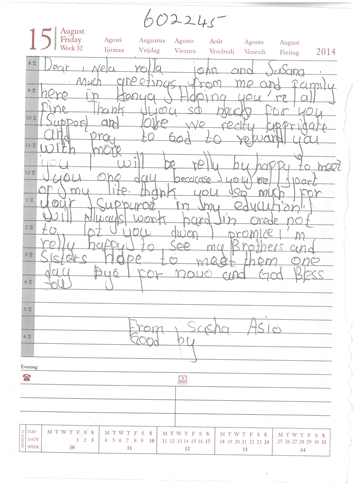 602245
15
August
Friday
Week 32
Agosti
Ijumaa
Augustus
Vrijdag
Agosto
Viernes
Août
Vendredi
Agosto
Venerdi
August
Freitag
2014
Dear Nela rolla john and Susana.
Much greetings from me and family
here in Kenya I Hoping you're all
fine thank you so much for you
support and love we really apprigate
and pray to God to reward you
with more
you I will be relly by happy to meet
you one day because you're part
of my life. thank you so much for
your support in my education.
Will Always work hard in order not
to let you dwon promice I'm
relly happy to see my Brothers and
Sisters Hope to meet them one
day Bye for now and God Bless
you
From Sasha Asio
Good by
Evening
DAY M T W T F S S M T W T F S S M T W T F S S M T W T F S S M T W T F S S
DATE 1 2 3 4 5 6 7 8 9 10 11 12 13 14 15 16 17 18 19 20 21 22 23 24 25 26 27 28 29 30 31
WEEK